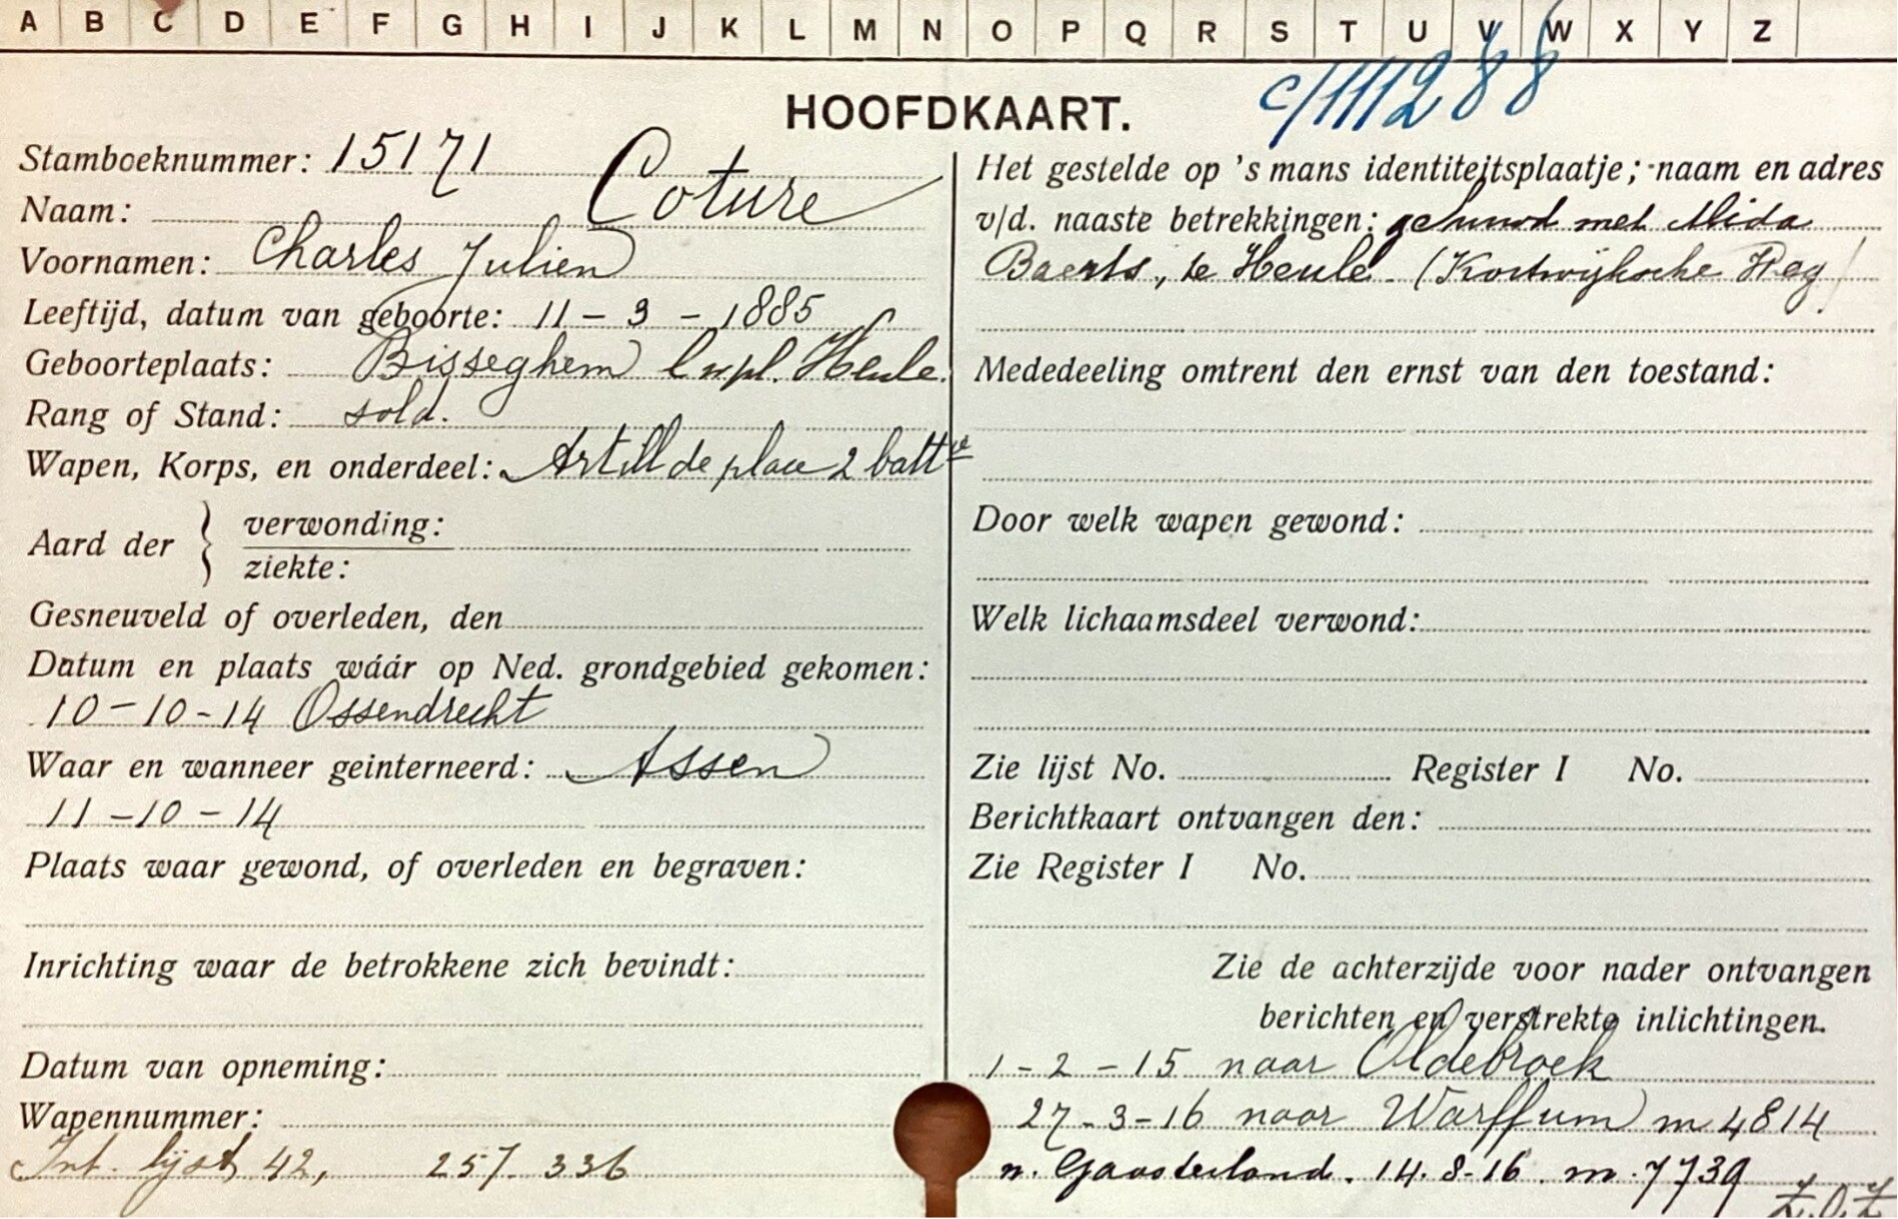 A B C D E F G H I J K L M N O P Q R S T U V W X Y Z
c/111288
HOOFDKAART.
Stamboeknummer: 15171
Naam: Coture
Voornamen: Charles Julien
Leeftijd, datum van geboorte: 11 - 3 - 1885
Geboorteplaats: Bisseghem Heule.
Rang of Stand: sold.
Wapen, Korps, en onderdeel: Artill de place 2 battie
Aard der { verwonding:
ziekte:
Gesneuveld of overleden, den
Datum en plaats wáár op Ned. grondgebied gekomen:
10-10-14 Ossendrecht
Waar en wanneer geinterneerd: Assen
11-10-14
Plaats waar gewond, of overleden en begraven:
Inrichting waar de betrokkene zich bevindt:
Datum van opneming:
Wapennummer:
Int. lijst 42, 257 336
Het gestelde op 's mans identiteitsplaatje; naam en adres
v/d. naaste betrekkingen: gehuwd met Alida
Baerts, te Heule (Kortrijksche
Mededeeling omtrent den ernst van den toestand:
Door welk wapen gewond:
Welk lichaamsdeel verwond:
Zie lijst No. Register I No.
Berichtkaart ontvangen den:
Zie Register I No.
Zie de achterzijde voor nader ontvangen
berichten en verstrekte inlichtingen.
1-2-15 naar Oldebroek
27-3-16 naar Warffum m 4814
n. Gaasterland. 14.8-16. m. 7739
Z.O.Z